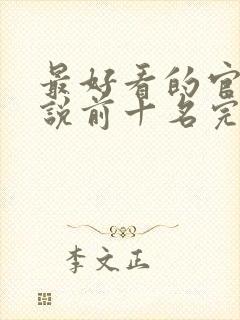 最好看的官
說前十名完
李文正